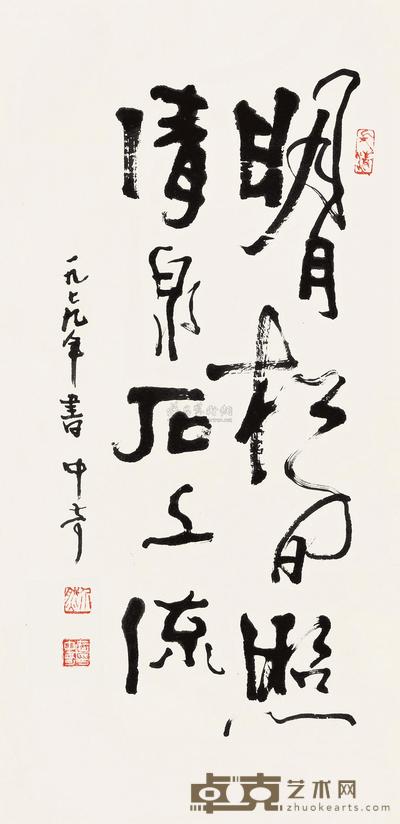 明月松间照
清泉石上流
一九七九年書 中奇
卓克艺术网
zhuokearts.com